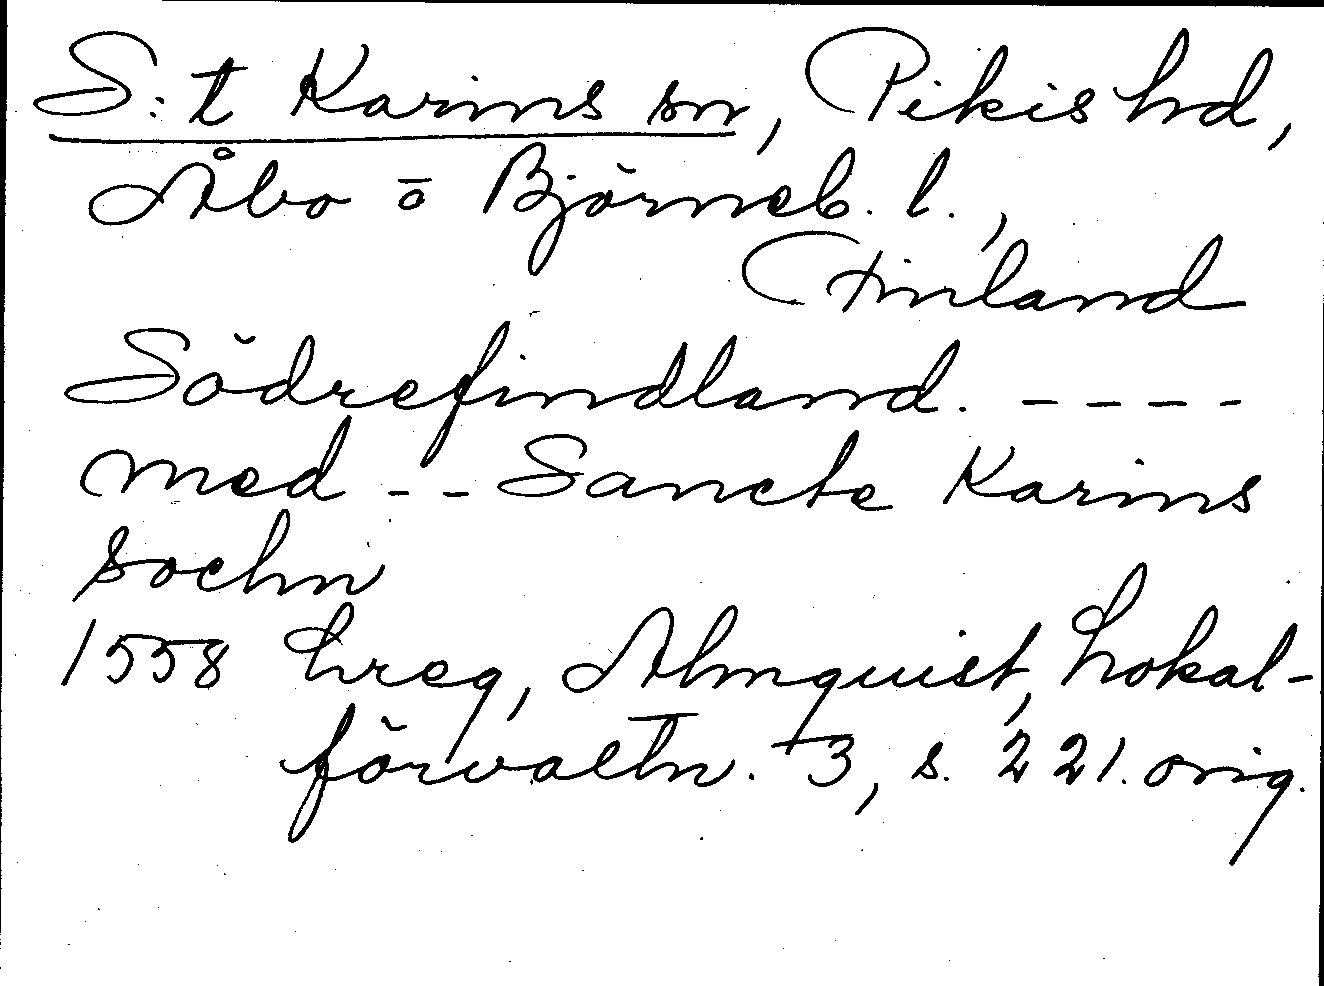 S:t Karins sn, Pikis hd,
Åbo o Björneb. l.,
Finland
Södrefindland. ----
med -- Sancte Karins
sochn
1558 hreg, Almquist, Lokal-
förvaltn. 3, s. 221. orig.